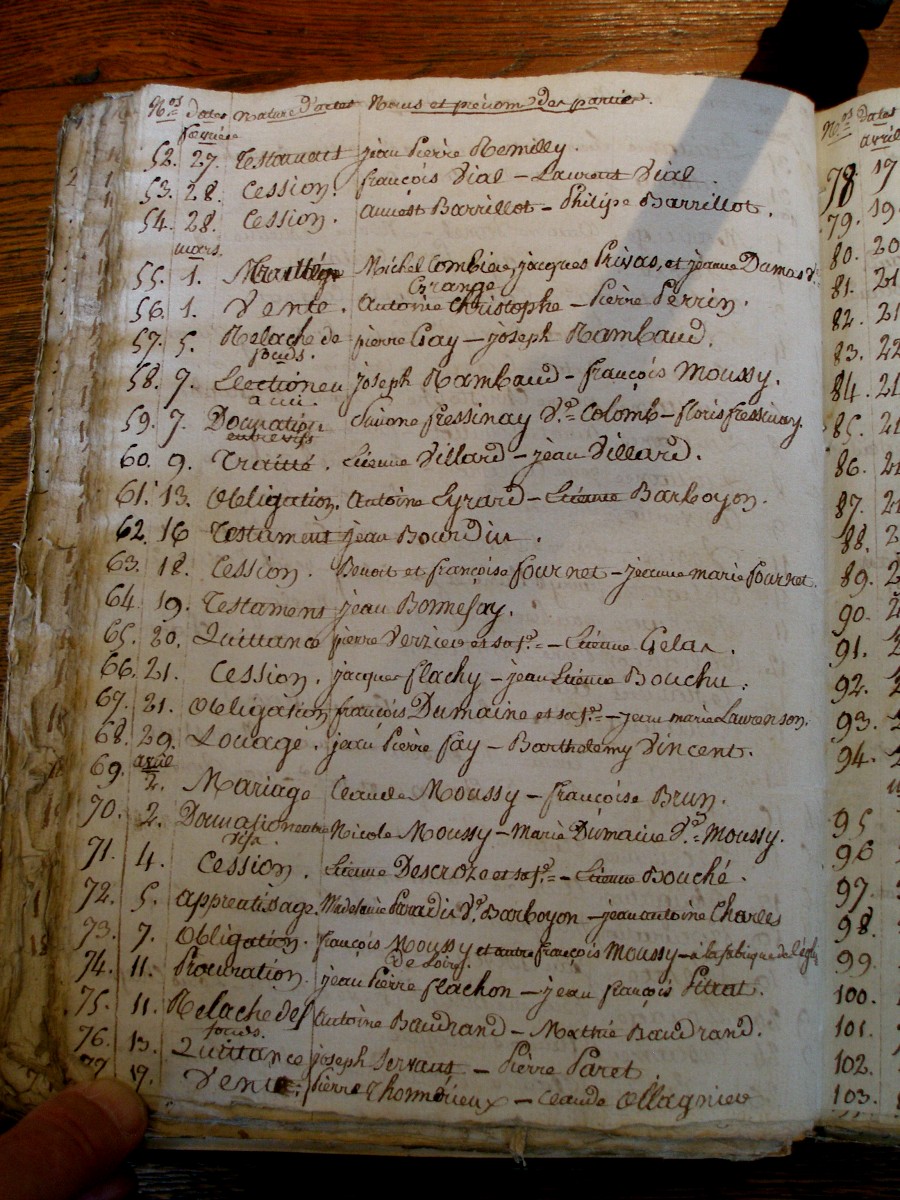 N.os dates nature d'actes Noms et prénom des parties.
février
52. 27. Testament jean Pierre Remilly.
53. 28. Cession. françois Vial - Laurent Vial.
54. 28. Cession. Barrillot - Philipe Barrillot.
mars.
55. 1. Michel Combier, jacques Privas, et jeanne Dumas v.e
Grange
56. 1. Vente. Antoine Christophe - Pierre Perrin.
57. 5. Relache de pierre Gay - joseph Rambaud.
fonds.
58. 7. Election en joseph Rambaud - françois Moussy.
ami
59. 7. Donnation Simone fressinay V.e Colomb - floris fressinay.
entrevifs
60. 9. Traitté. Etienne Villard - jean Villard.
61. 13. Obligation. Antoine Eyrard - Etienne Barboyon.
62. 16 Testament jean Bourdin.
63. 18. Cession. Benoit et françoise fournet - jeanne marie fournet.
64. 19. Testamens jean Bonnefay.
65. 20. Quittance pierre Verzieu et sa f.e - Etienne Gelas.
66. 21. Cession. jacques flachy - jean Etienne Bouchu.
67. 21. Obligation françois Dumaine et sa f.e - jean marie Laurenson.
68. 29. Louage. jean Pierre fay - Barthelemy Vincent.
avril
69. 2. Mariage Claude Moussy - françoise Brun.
70. 2. Donnation entre Nicole Moussy - Marie Dumaine V.e Moussy.
vifs.
71. 4. Cession. Etienne Descroze et sa f.e - Etienne Bouché.
72. 5. apprentissage. Madelaine Paradis V.e Barboyon - jean antoine Charles
73. 7. Obligation. françois Moussy et autre françois Moussy - à la fabrique de l'église
De Loire.
74. 11. Procuration. jean Pierre flachon - jean françois Pitrat.
75. 11. Relache des Antoine Baudrand - Mathié Baudrand.
fonds.
76. 13. Quittance joseph Servant - Pierre Paret.
77 19. Vente. pierre Thomérieux - Claude Ollagnier
N.os Dates
avril
78 17
79. 19
80. 20
81. 21
82. 21
83. 22
84. 21
85. 21
86. 21
87. 21
88. 2
89. 2
90. 2
91.
92.
93.
94.
95
96
97.
98.
99.
100.
101.
102.
103.